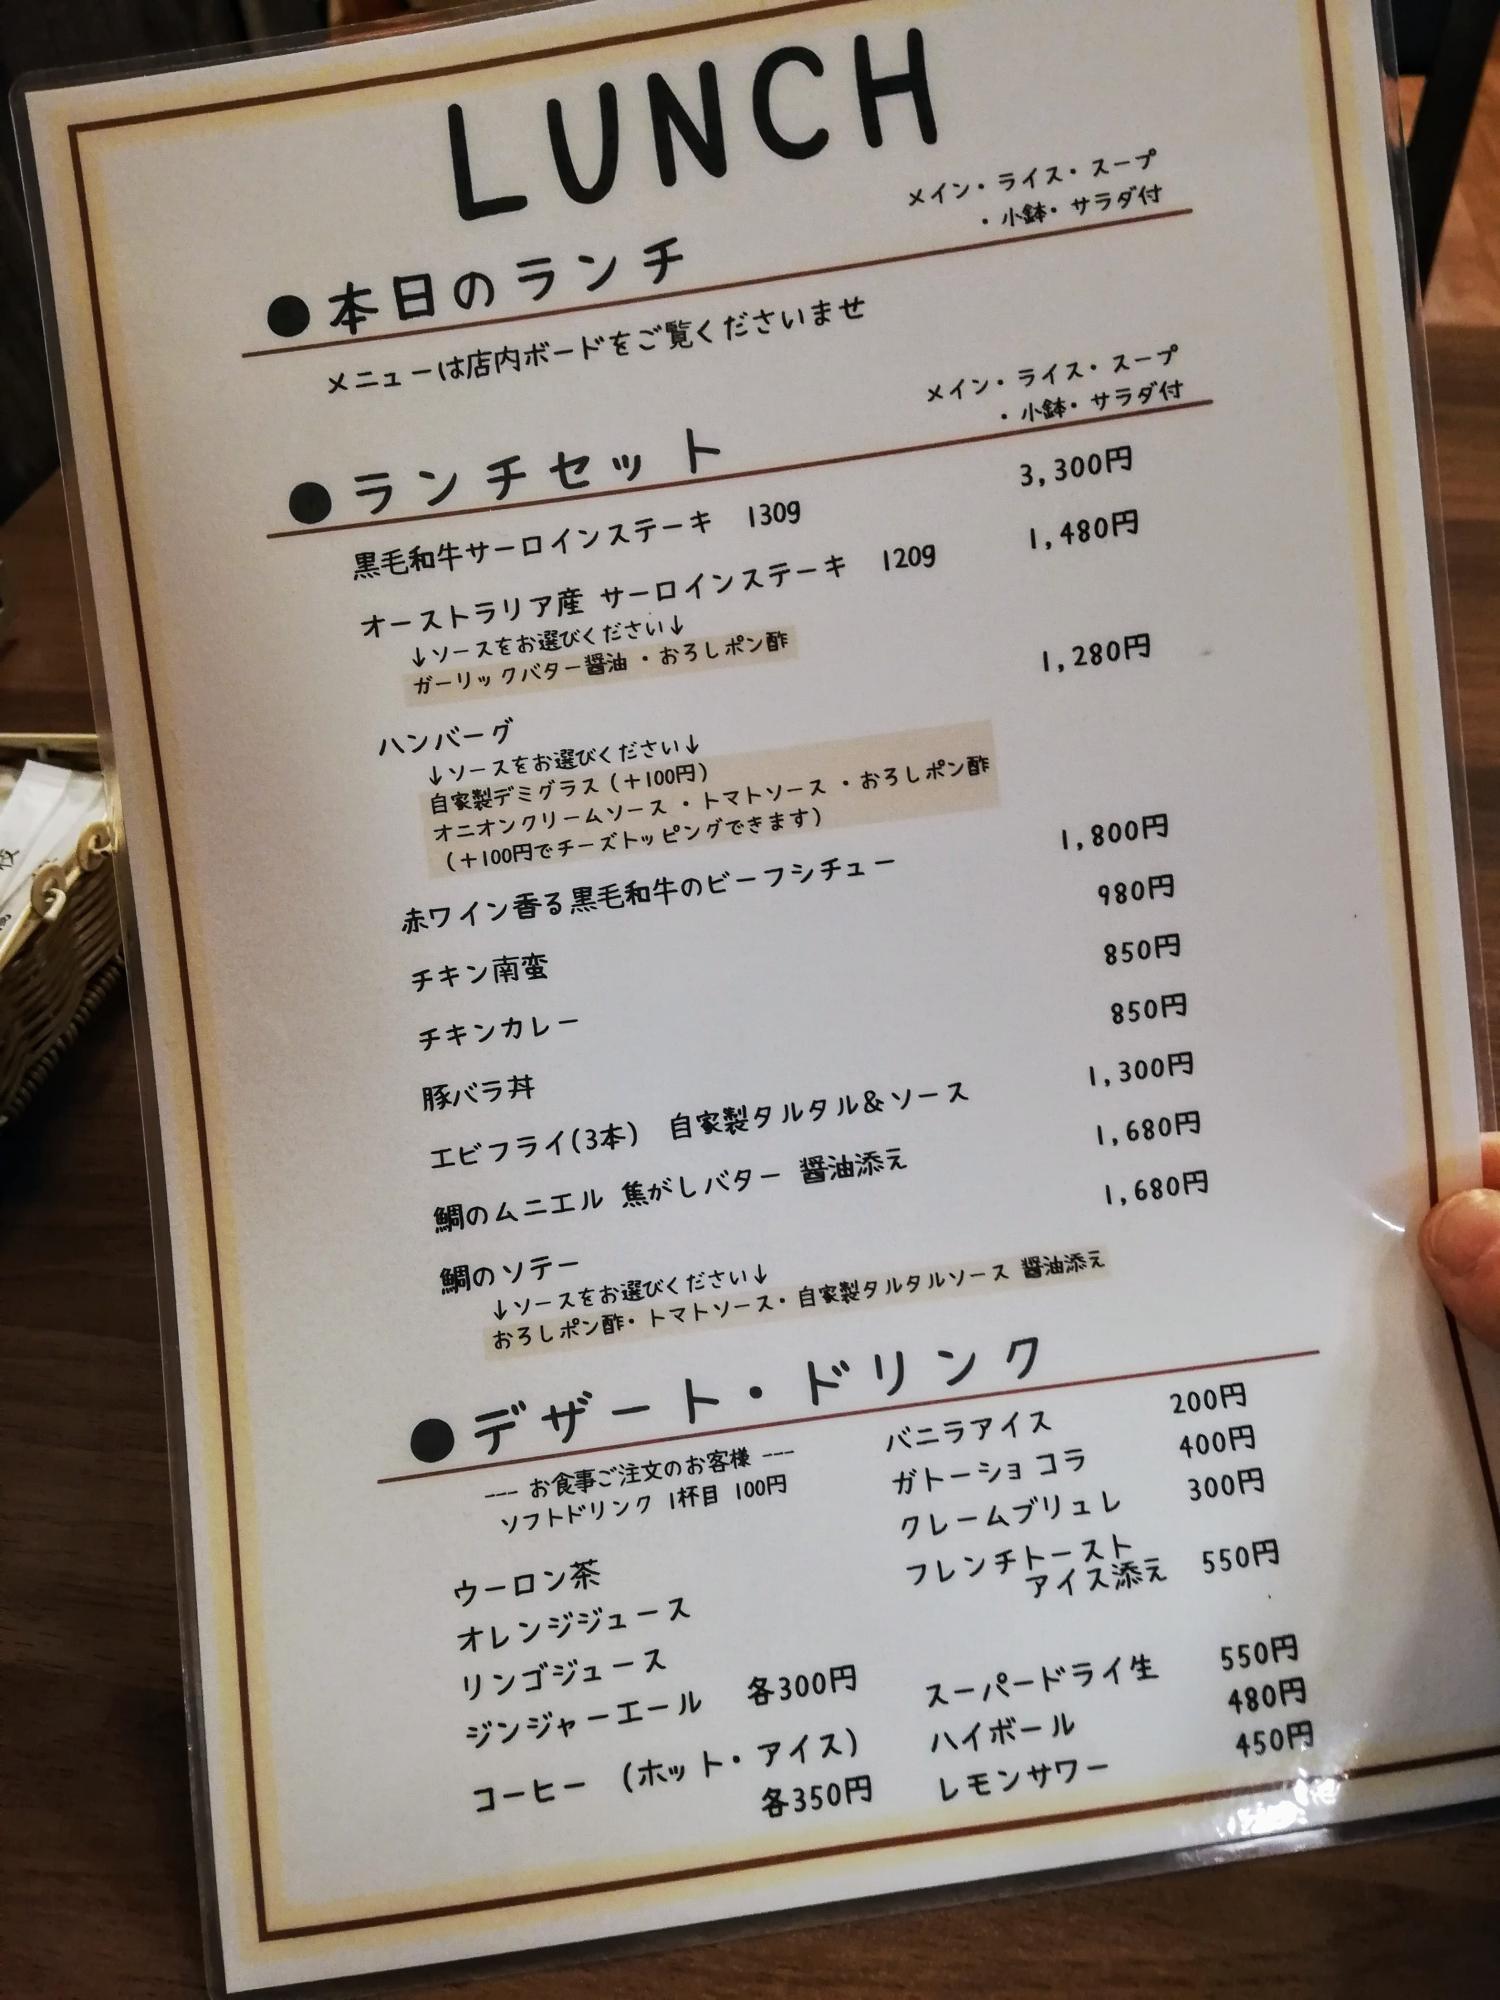 LUNCH
メイン・ライス・スープ
・小鉢・サラダ付
●本日のランチ
メニューは店内ボードをご覧くださいませ
メイン・ライス・スープ
・小鉢・サラダ付
●ランチセット
黒毛和牛サーロインステーキ 130g 3,300円
オーストラリア産 サーロインステーキ 120g 1,480円
↓ソースをお選びください↓
ガーリックバター醤油・おろしポン酢
ハンバーグ 1,280円
↓ソースをお選びください↓
自家製デミグラス(+100円)
オニオンクリームソース・トマトソース・おろしポン酢
(+100円でチーズトッピングできます)
赤ワイン香る黒毛和牛のビーフシチュー 1,800円
チキン南蛮 980円
チキンカレー 850円
豚バラ丼 850円
エビフライ(3本) 自家製タルタル&ソース 1,300円
鯛のムニエル 焦がしバター 醤油添え 1,680円
鯛のソテー 1,680円
↓ソースをお選びください↓
おろしポン酢・トマトソース・自家製タルタルソース 醤油添え
●デザート・ドリンク
--- お食事ご注文のお客様 ---
ソフトドリンク 1杯目 100円
ウーロン茶
オレンジジュース
リンゴジュース
ジンジャーエール 各300円
コーヒー (ホット・アイス)
各350円
バニラアイス 200円
ガトーショコラ 400円
クレームブリュレ 300円
フレンチトースト
アイス添え 550円
スーパードライ生 550円
ハイボール 480円
レモンサワー 450円